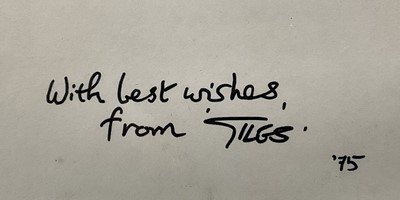 With best wishes,
from GILES.
'75